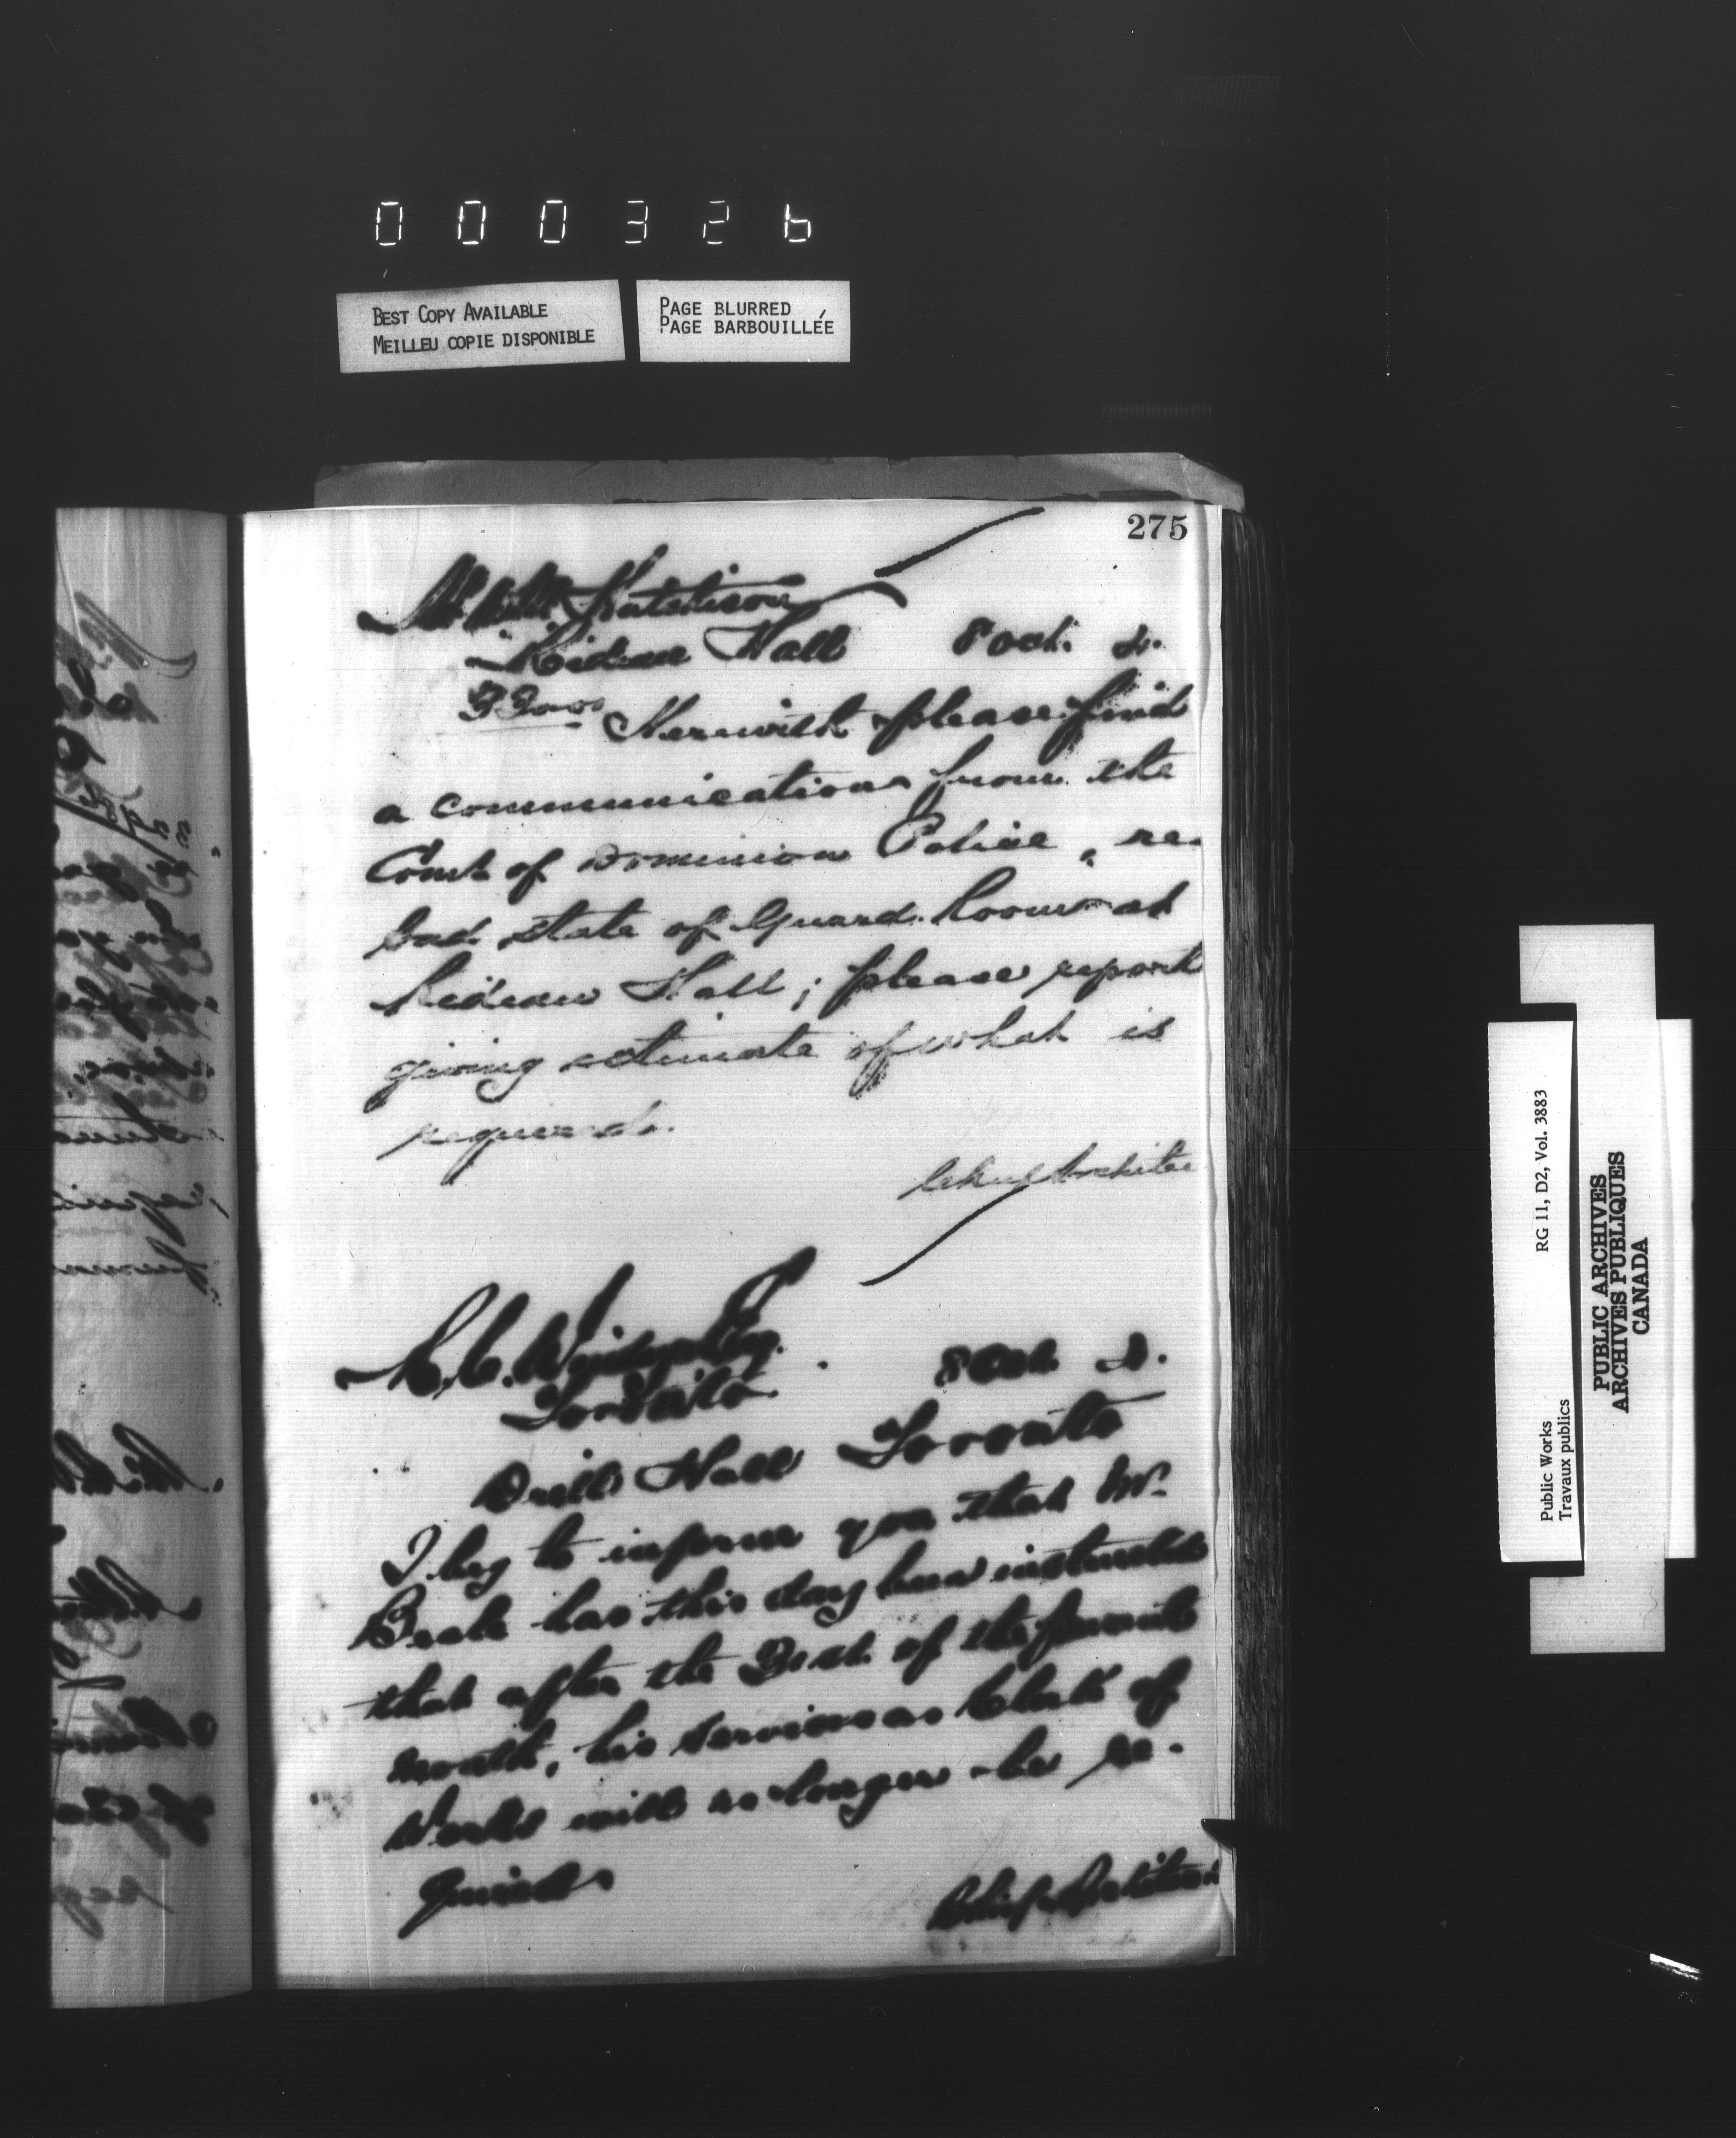 000326
BEST COPY AVAILABLE
MEILLEU COPIE DISPONIBLE
PAGE BLURRED
PAGE BARBOUILLÉE
275
Hutchison
Rideau Hall 8 Oct.
Herewith please find
a communication from the
Comr of Dominion Police, re.
bad state of Guard Room at
Rideau Hall; please report
giving estimate of what is
required.
Chief Architec
Toronto 8 Oct
Drill Hall Toronto
I beg to inform you that Mr.
has this day been instructed
that after the 31st of the present
month, his services as Clerk of
Works will no longer be re-
quired
Chief Architect
Public Works
Travaux publics
RG 11, D2, Vol. 3883
PUBLIC ARCHIVES
ARCHIVES PUBLIQUES
CANADA